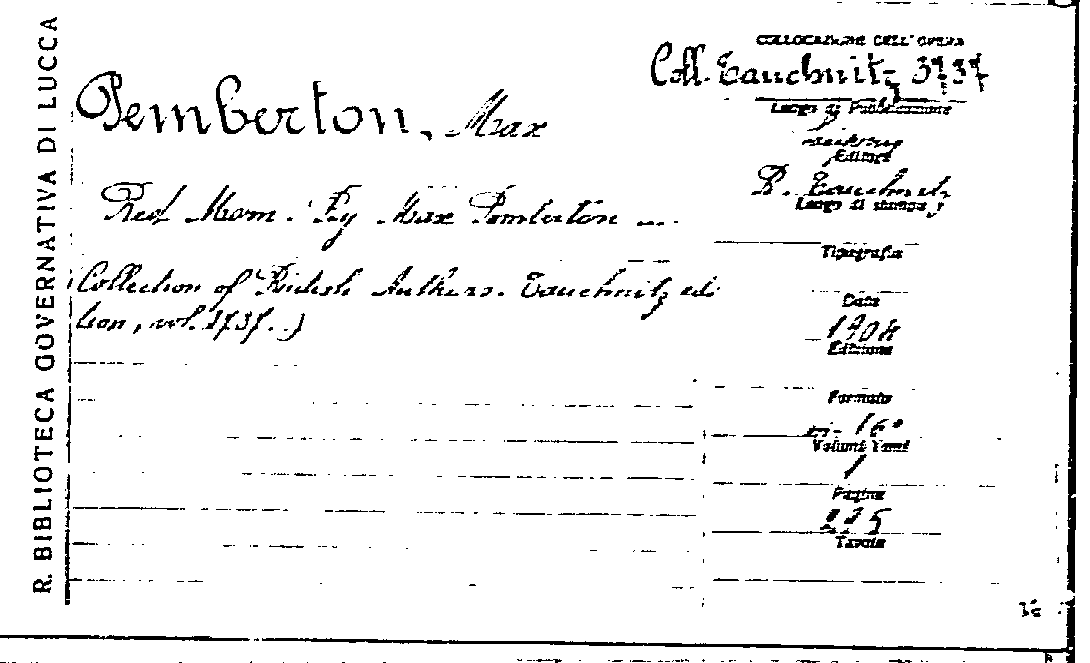 R. BIBLIOTECA GOVERNATIVA DI LUCCA
COLLOCAZIONE DELL'OPERA
Coll. Tauchnitz 3737
Pemberton, Max
Red Morn. By Max Pemberton ...
Collection of British Authors. Tauchnitz edi
tion, vol. 3737.)
Luogo di Pubblicazione
Editore
B. Tauchnitz
Luogo di stampa
Tipografia
Data
1904
Edizione
Formato
in-16°
Volumi Tomi
1
Pagine
Tavole